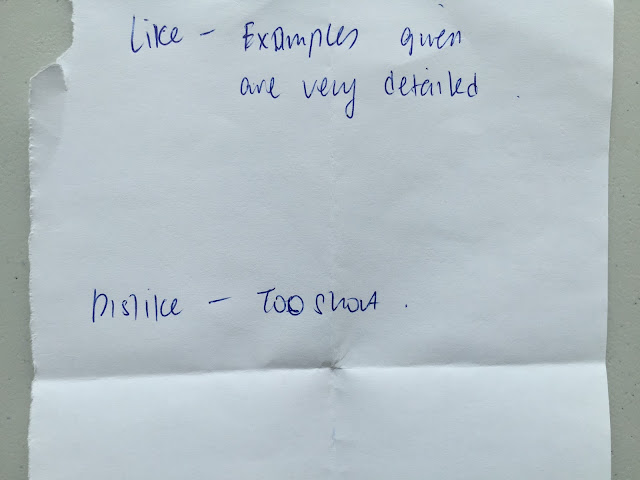 Like - Examples given
are very detailed.
Dislike - Too short.